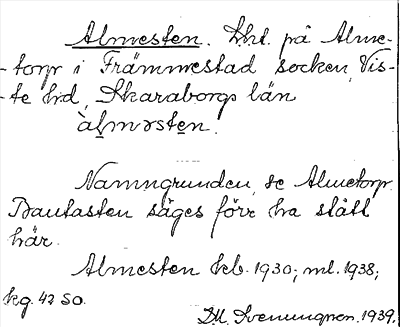 Almesten. Lht. på Alme-
-torp i Främmestad socken, Vis-
-te hd, Skaraborgs län
àlmɘstẹn.
Namngrunden, se Almetorp.
Bautasten säges förr ha stått
här.
Almesten hcb. 1930; ml. 1938;
kg. 42 SO.
D.M. Svenungsson. 1939.